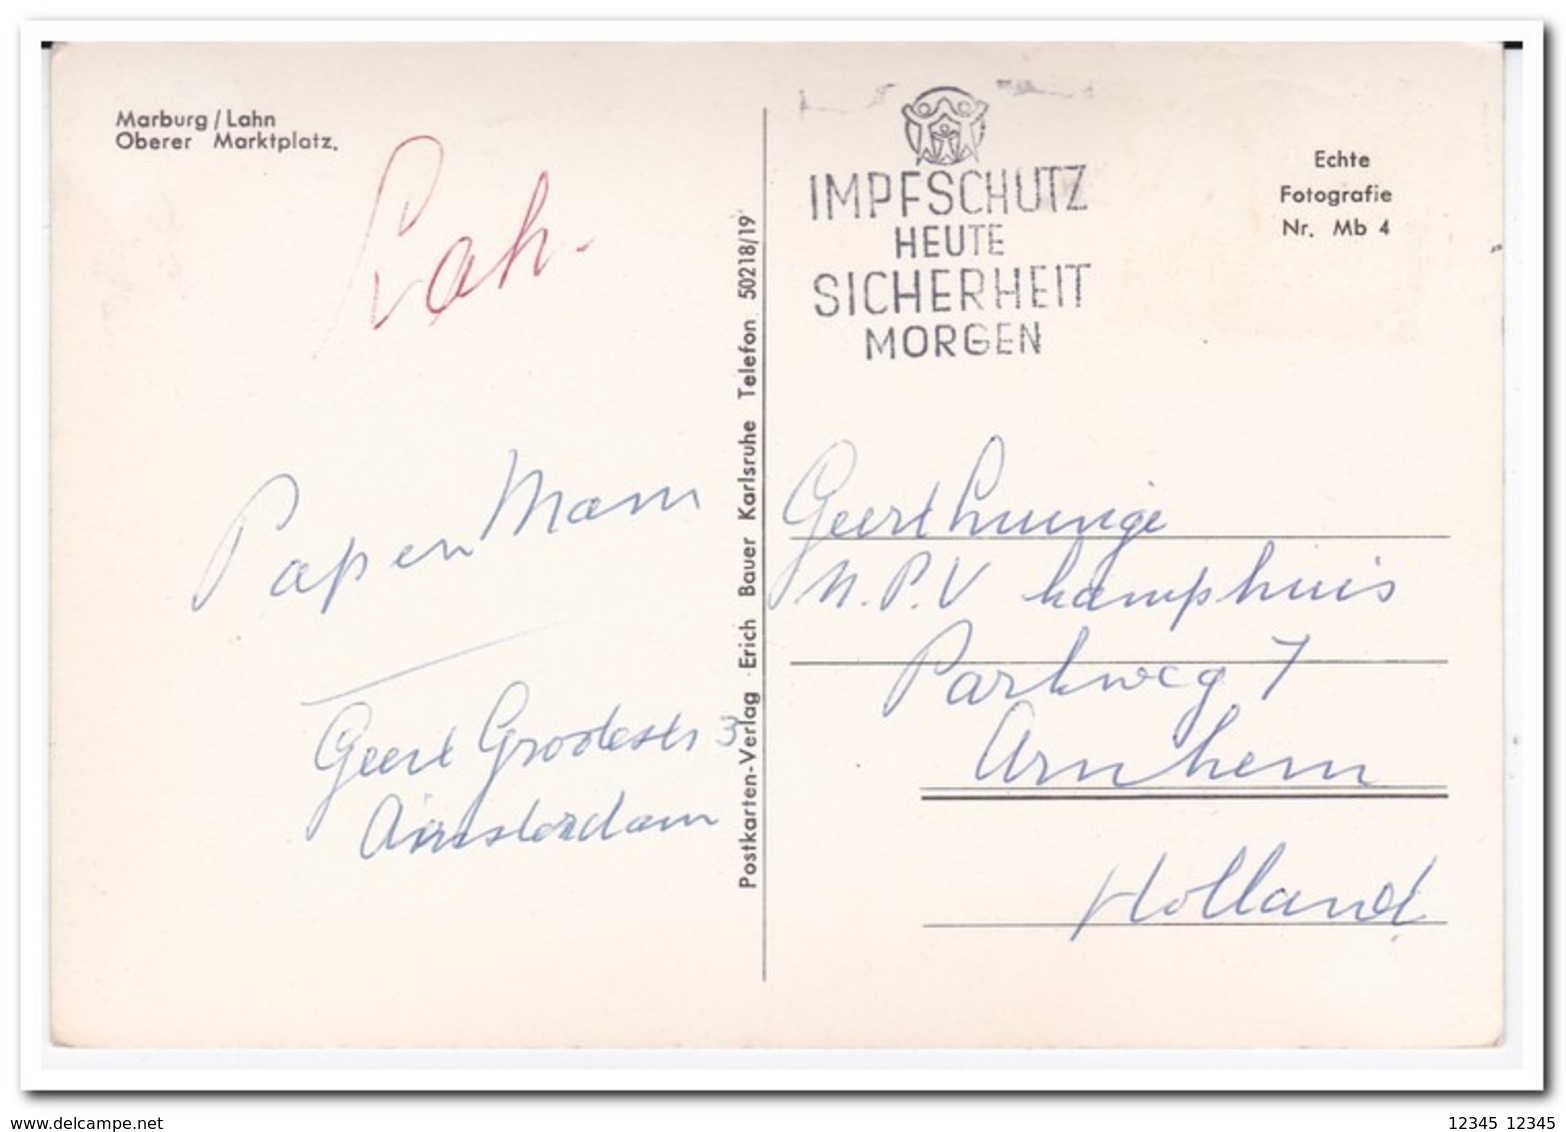 Marburg / Lahn
Oberer Marktplatz.
Papen Mam
Geert
Amsterdam
Postkarten-Verlag Erich Bauer Karlsruhe Telefon 50218/19
IMPFSCHUTZ
HEUTE
SICHERHEIT
MORGEN
Echte
Fotografie
Nr. Mb 4
Geert
N.P.V kamphuis
Parkweg 7
Arnhem
Holland
www.delcampe.net
12345 12345